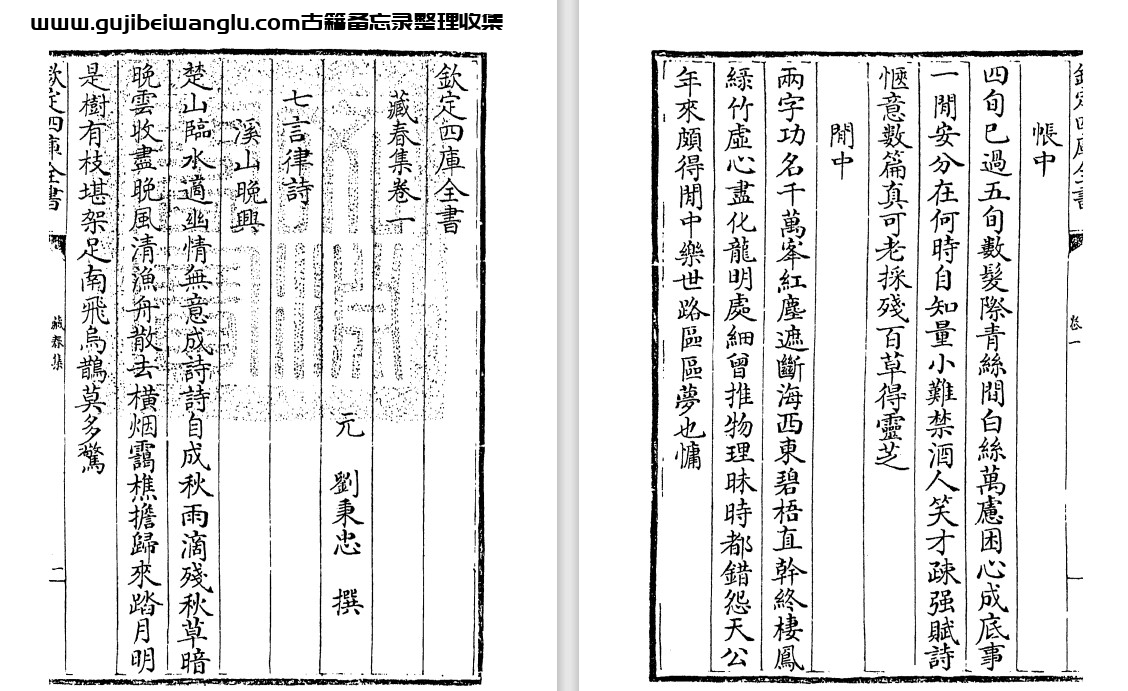 www.gujibeiwanglu.com古籍备忘录整理收集
欽定四庫全書
藏春集卷一
元 劉秉忠 撰
七言律詩
溪山晚興
楚山臨水適幽情無意成詩詩自成秋雨滴殘秋草暗
晚雲收盡晚風清漁舟散去橫烟靄樵擔歸來踏月明
是樹有枝堪架足南飛烏鵲莫多驚
欽定四庫全書 藏春集 二
欽定四庫全書 卷一
帳中
四旬已過五旬數髮際青絲間白絲萬慮困心成底事
一閒安分在何時自知量小難禁酒人笑才疎强賦詩
愜意數篇真可老採殘百草得靈芝
閒中
兩字功名千萬峯紅塵遮斷海西東碧梧直幹終棲鳳
緑竹虛心盡化龍明處細曾推物理昧時都錯怨天公
年來頗得閒中樂世路區區夢也慵